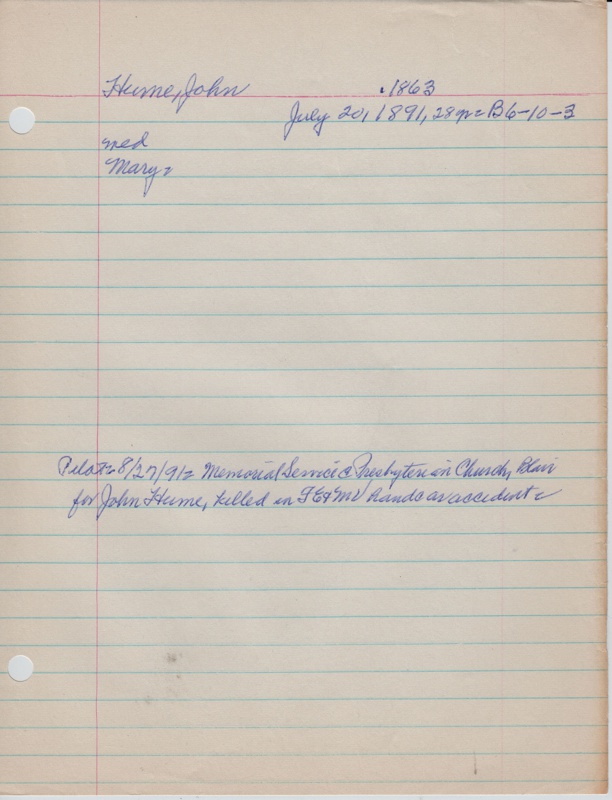 Hume, John .1863
July 20, 1891, 28yr= B6-10-3
med
Mary=
Pilot= 8/27/91= Memorial Service @ Presbyterian Church, Blair
for John Hume, killed in FE&MV handcar accident=